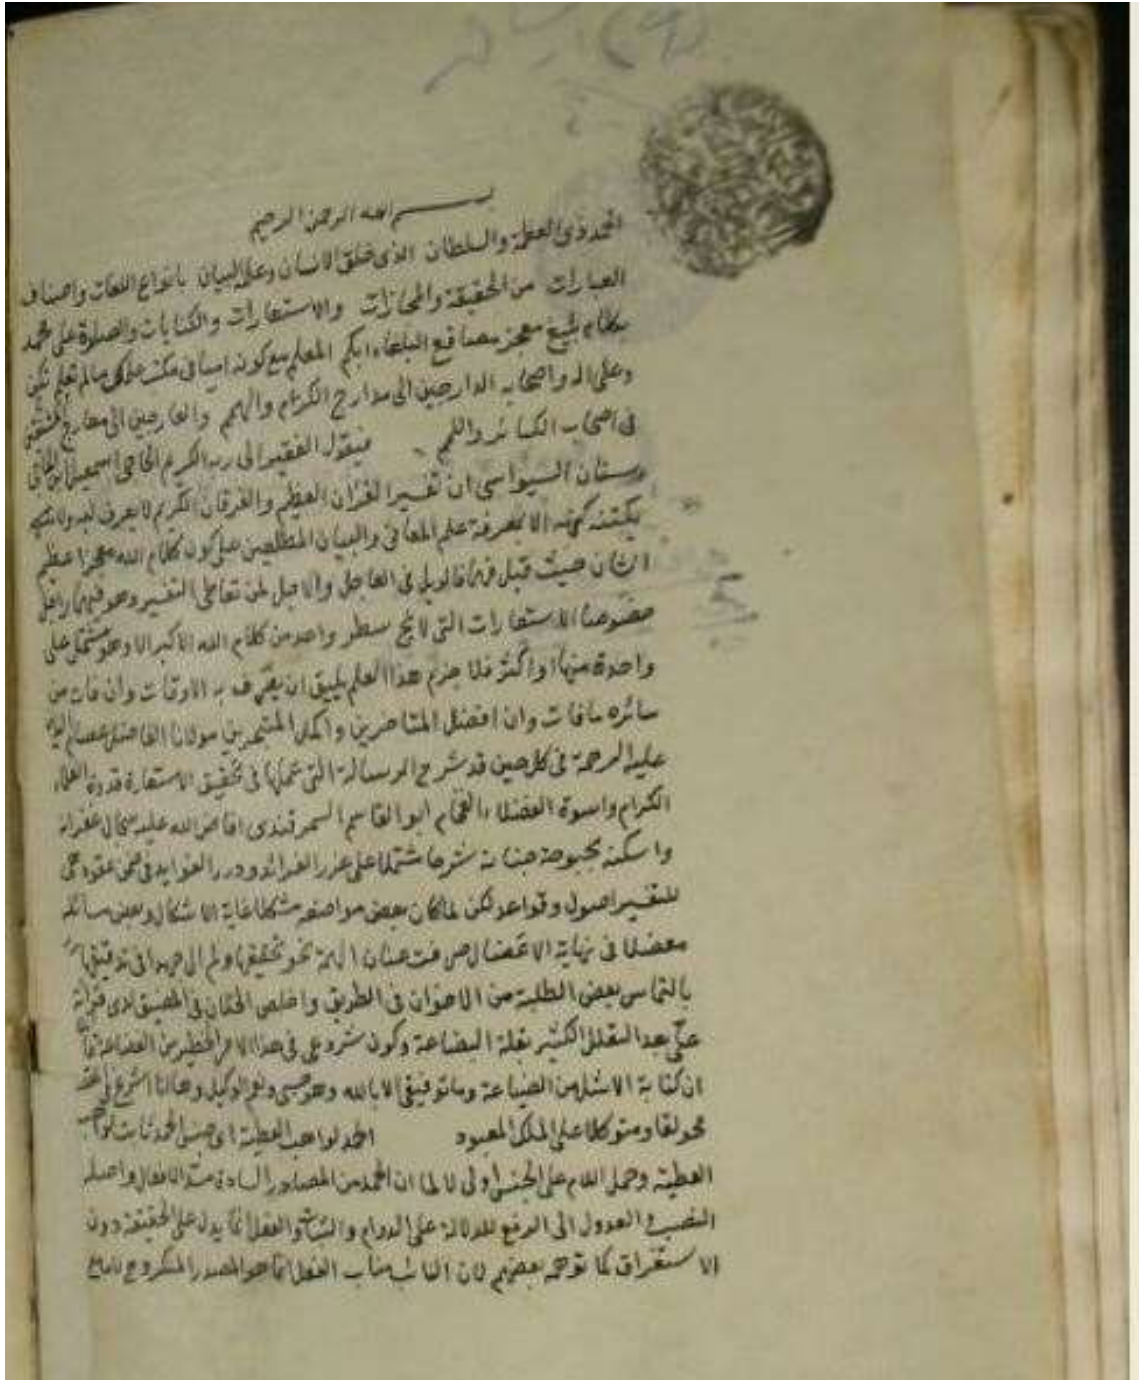 بسم الله الرحمن الرحيم
الحمد ذى العظمة والسلطان الذى خلق الانسان وعلمه البيان بانواع اللغات واصناف
العبارات من الحقيقة والمجازات والاستعارات والكنايات والصلوة على محمد
بكلام بليغ معجز مصاقع البلغاء ابكم المعلم مع كونه اميا فى مالم تعلم
وعلى اله واصحابه الدارجين الى مدارج الكرام والهمم والعارجين الى معارج
فى اصحاب الكبائر واللمم فيقول الفقير الى ربه الكريم الحاجى اسمعيل
السيواسى ان تفسير القران العظيم والفرقان الكريم لا يعرف لبه ولا
يكتنه كنهه الا بمعرفة علم المعانى والبيان المتطلعين على كون كلام الله معجزا عظيم
الشان حيث قيل فى العاجل والاجل لمن تعاطى التفسير وهو فيهما راجل
خصوصا الاستعارات التى سطر واحد من كلام الله الاكبر الا وهو مشتمل على
واحدة منها او اكثر فلا جرم هذا العلم يليق ان يصرف به الاوقات وان فات من
سائره مافات وان افضل المتاخرين واكمل المتبحرين مولانا الفاضل عصام
عليه الرحمة فى كل حين قد شرح الرسالة التى عملها فى تحقيق الاستعارة قدوة العلماء
الكرام واسوة الفضلاء الفخام ابو القاسم السمرقندى افاض الله عليه سجال غفرانه
واسكنه بحبوحة جنانه شرحا مشتملا على غرر الفرائد ودرر الفوايد فى ضمن عقود هى
للتفسير اصول وقواعد لكن لما كان بعض مواضعه مشكلا غاية الاشكال وبعض مسائله
معضلا فى نهاية الاعضال صرفت عنان الهمة نحو تحقيقها ولم ال جهدا فى تدقيقها
بالتماس بعض الطلبة من الاخوان فى الطريق واخلص الخلان فى المضيق لدى قرائته
على بعد التعلل الكثير بقلة البضاعة وكون شروعى فى هذا الامر الخطير من
ان كتابة الضياعة وما توفيقى الا بالله وهو حسبى ونعم الوكيل وها انا اشرع فى
محولقا ومتوكلا على الملك المعبود الحمد لواهب العطية اى جنس الحمد ثابت لواهب
العطية وحمل اللام على الجنس اولى لا لما ان الحمد من المصادر السادة مسد الافعال واصله
النصب والعدول الى الرفع للدلالة على الدوام والثبات والفعل انما يدل على الحقيقة دون
الاستغراق كما توهمه بعضهم لان النائب مناب الفعل انما هو المصدر المنكر